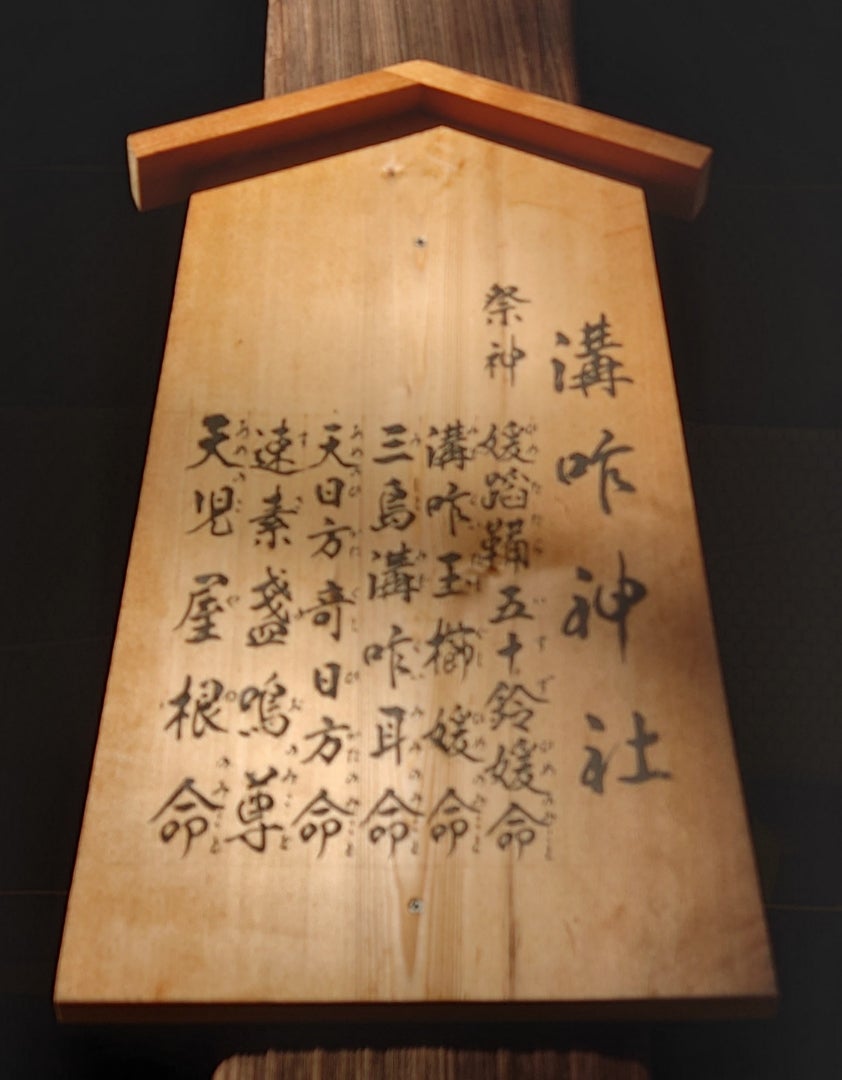 溝咋神社
祭神
媛蹈鞴五十鈴媛命
溝咋玉櫛媛命
三島溝咋耳命
天日方奇日方命
速素盞嗚尊
天児屋根命